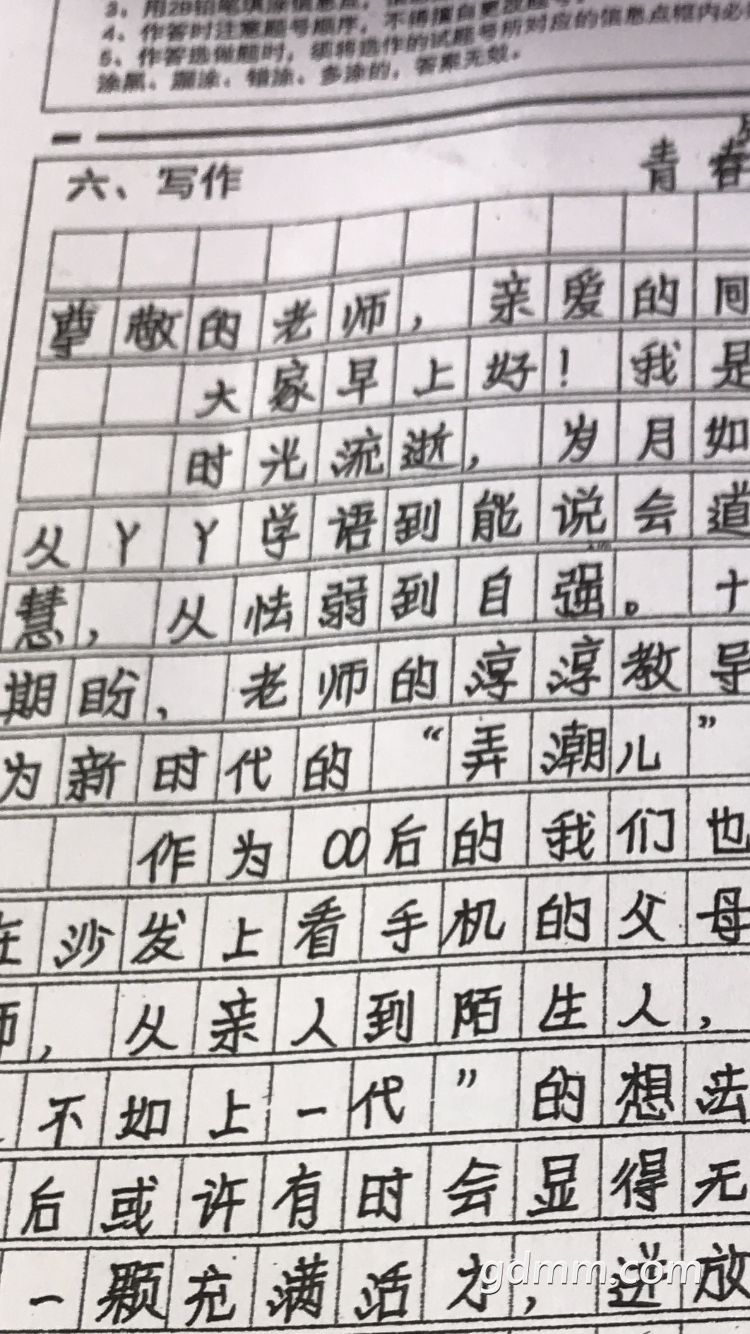 3、用2B铅笔填涂信息点，
4、作答时注意题号顺序，不得擅自更改题号
5、作答选做题时，须将选作的试题号所对应的信息点框内必
涂黑、漏涂、错涂、多涂的，答案无效。
六、写作
青春
尊敬的老师，亲爱的同
大家早上好！我是
时光流逝，岁月如
从丫丫学语到能说会道
慧，从怯弱到自强。十
期盼、老师的淳淳教导
为新时代的“弄潮儿”
作为00后的我们也
在沙发上看手机的父母
师，从亲人到陌生人，
不如上一代”的想法
后或许有时会显得无
一颗充满活力，迸放
gdmm.com